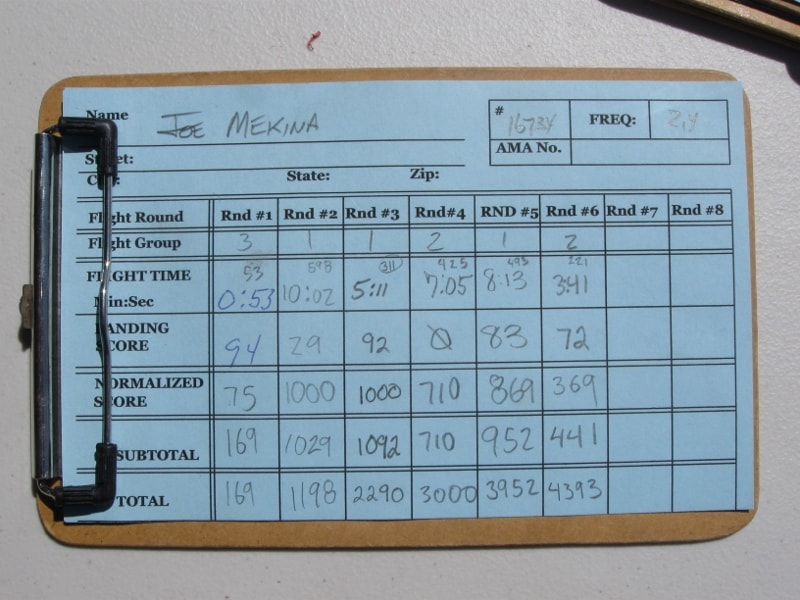 Name JOE MEKINA
# 16734 FREQ: 2.4
AMA No.
Street:
State: Zip:
Flight Round Rnd #1 Rnd #2 Rnd #3 Rnd#4 RND #5 Rnd #6 Rnd #7 Rnd #8
Flight Group 3 1 1 2 1 2
53 598 311 425 493 221
FLIGHT TIME
Min:Sec 0:53 10:02 5:11 7:05 8:13 3:41
LANDING
SCORE 94 29 92 0 83 72
NORMALIZED
SCORE 75 1000 1000 710 869 369
SUBTOTAL 169 1029 1092 710 952 441
TOTAL 169 1198 2290 3000 3952 4393